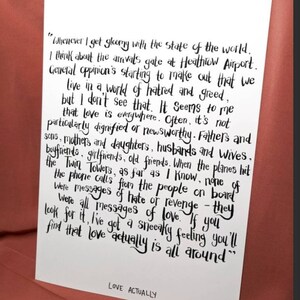 "Whenever I get gloomy with the state of the world,
I think about the arrivals gate at Heathrow Airport.
General opinion's starting to make out that we
live in a world of hatred and greed,
but I don't see that. It seems to me
that love is everywhere. Often, it's not
particularly dignified or newsworthy. Fathers and
sons, mothers and daughters, husbands and wives,
boyfriends, girlfriends, old friends. When the planes hit
the Twin Towers, as far as I know, none of
the phone calls from the people on board
were messages of hate or revenge - they
were all messages of love. If you
look for it, I've got a sneaky feeling you'll
find that love actually is all around"
LOVE ACTUALLY